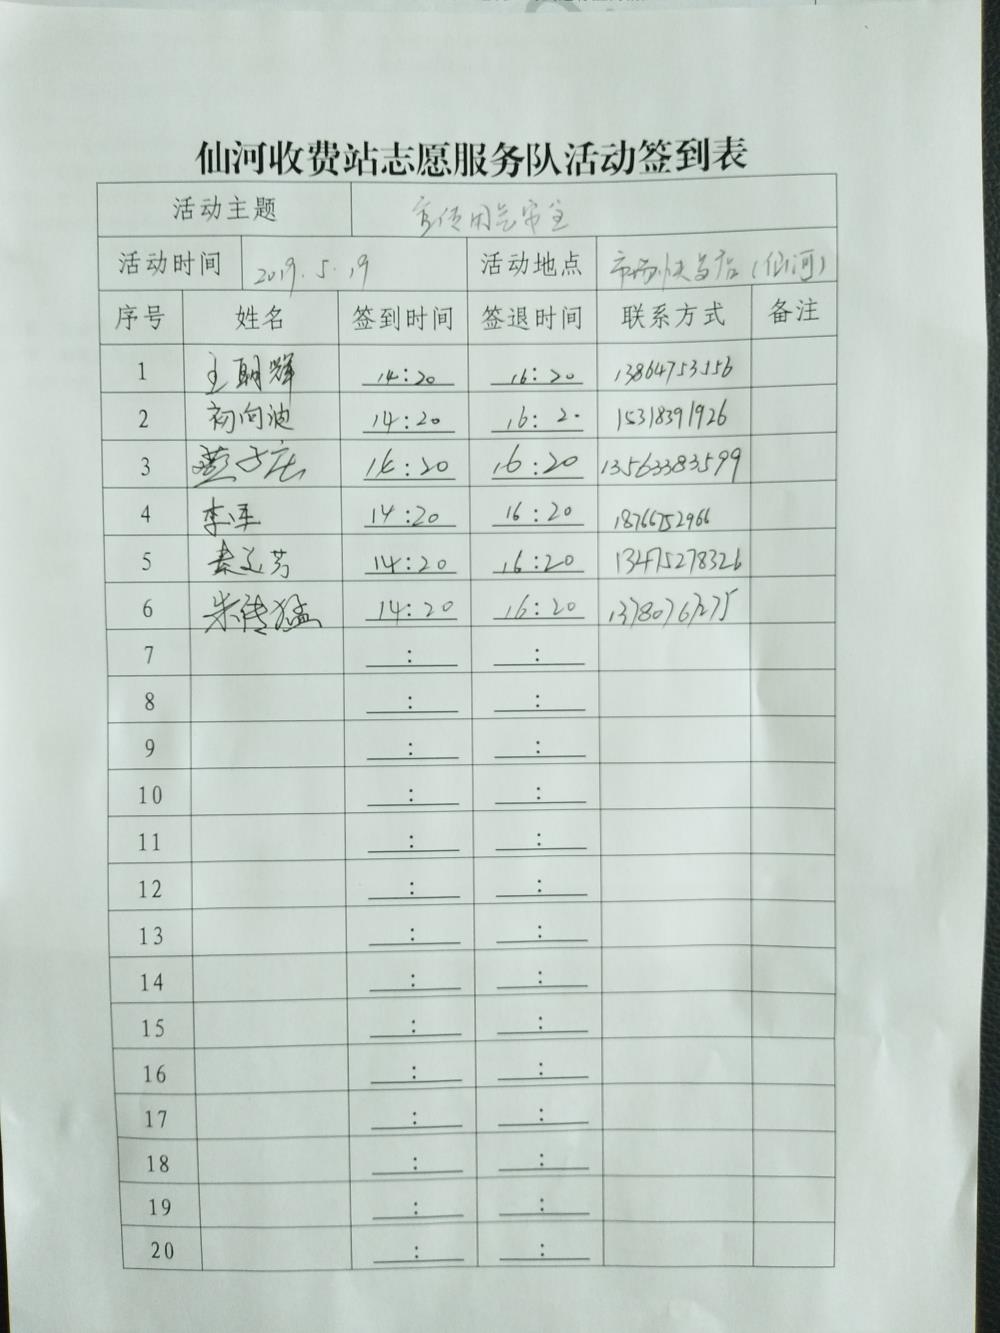 仙河收费站志愿服务队活动签到表
活动主题 宣传用气安全
活动时间 2019.5.19 活动地点 （仙河）
序号 姓名 签到时间 签退时间 联系方式 备注
1 王朝辉 14:20 16:20 13864753556
2 初向迪 14:20 16:20 15318391926
3 燕子庄 14:20 16:20 13563383599
4 李 14:20 16:20 18766752966
5 14:20 16:20 13475278326
6 朱传猛 14:20 16:20
7 :  :
8 :  :
9 :  :
10 :  :
11 :  :
12 :  :
13 :  :
14 :  :
15 :  :
16 :  :
17 :  :
18 :  :
19 :  :
20 :  :